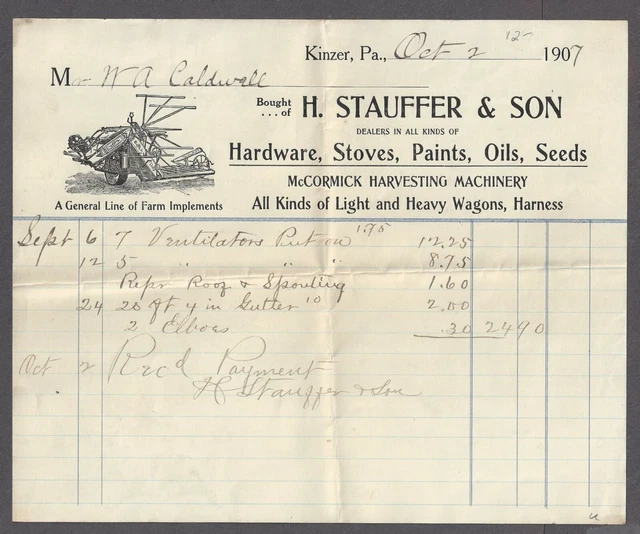 Kinzer, Pa., Oct 2 1907
Mr W A Caldwell
Bought of H. STAUFFER & SON
DEALERS IN ALL KINDS OF
Hardware, Stoves, Paints, Oils, Seeds
McCORMICK HARVESTING MACHINERY
A General Line of Farm Implements
All Kinds of Light and Heavy Wagons, Harness
Sept 6 7 Ventilators Put on 1.75 12.25
12 5 " " " 8.75
Repr Roof & Spouting 1.60
24 20 ft 4 in Gutter 10 2.00
2 Elboes .30 24 90
Oct 2 Recd Payment
H Stauffer & Son